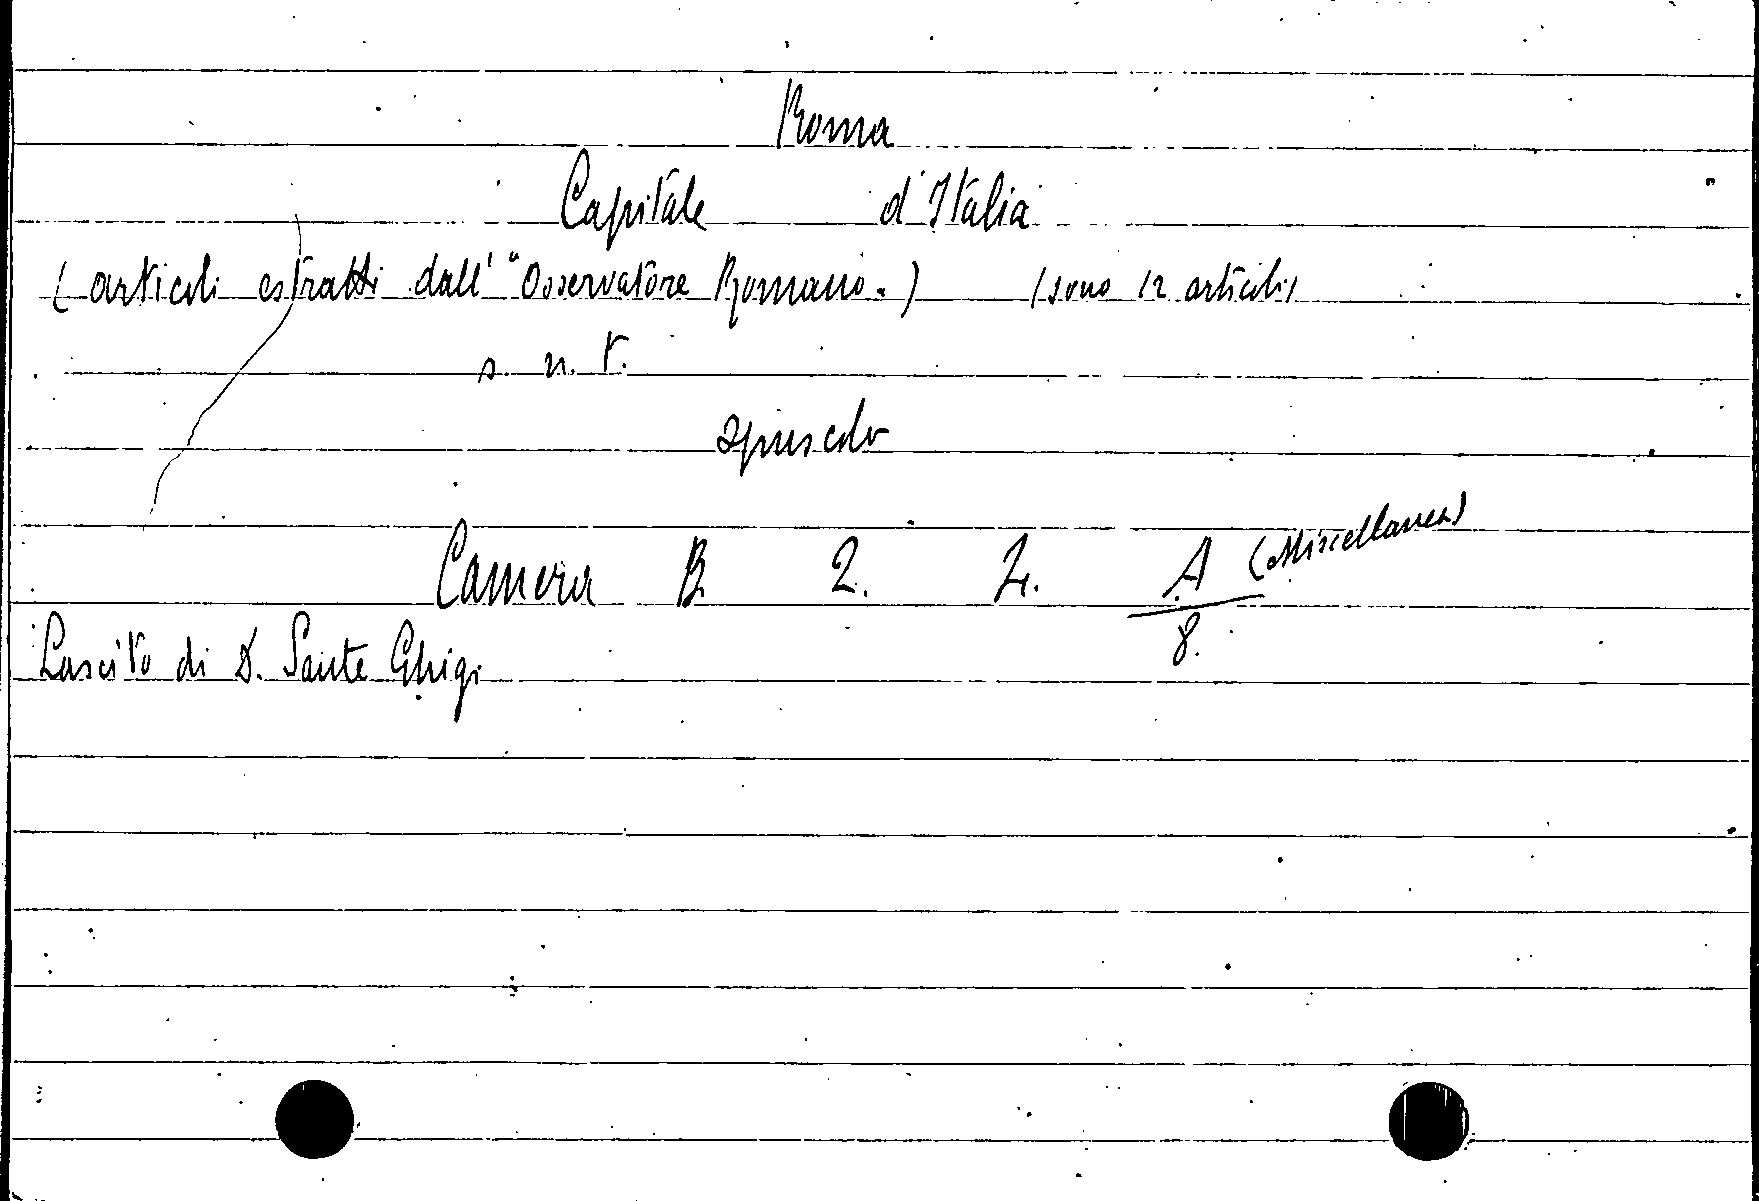 Roma
Capitale d'Italia
(articoli estratti dall' "Osservatore Romano.) (sono 12 articoli)
s. n. t.
opuscolo
Camera B. 2. 4. A (Miscellanea)
8.
Lascito di D. Sante Ghigi